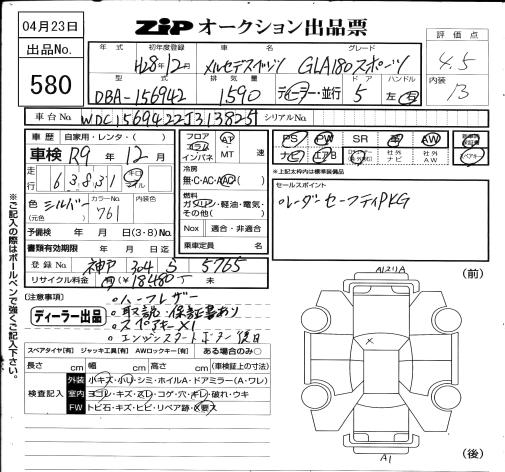 04月23日
ZiP オークション出品票
出品No.
580
年式 初年度登録 車名 グレード
H28年12月 メルセデスベンツ GLA180スポーツ
評価点
4.5
型式 排気量 ドア ハンドル
DBA-156942 1590 ディーラー・並行 5 左・右
内装
B
車台No. WDC1569422J313825 シリアルNo.
車歴 自家用・レンタ・( )
車検 R9年12月
走行 63831 キロ マイル
色 (元色) シルバー カラーNo. 761
予備検 年 月 日(3・8)No.
書類有効期限 年 月 日迄
登録No. 神戸 304 5 5765
リサイクル料金 有(¥18480) 未
フロア コラム インパネ AT・MT 速
冷房 無・C・AC・AAC
燃料 ガソリン・軽油・電気・その他( )
Nox 適合・非適合
乗車定員 名
PS PW SR 革 AW
ナビ エアB 社外ナビ 社外AW
*上記太枠内は標準装備品
セールスポイント
レーダーセーフティPKG
注意事項
ディーラー出品
○ハーフレザー
○取説・保証書あり
○スペアキー×1
スペアタイヤ[有] ジャッキ工具[有] AWロックキー[有] ある場合のみ○
長さ cm 幅 cm 高さ cm (車検証上の寸法)
検査記入
外装 小キズ・小U・シミ・ホイルA・ドアミラー(A・ワレ)
室内 ヨゴレ・キズ・スレ・コゲ・穴・キレ・破れ・ウキ
FW トビ石・キズ・ヒビ・リペア跡・要交
※ご記入の際はボールペンで強くご記入下さい。
(前)
×
A1
(後)